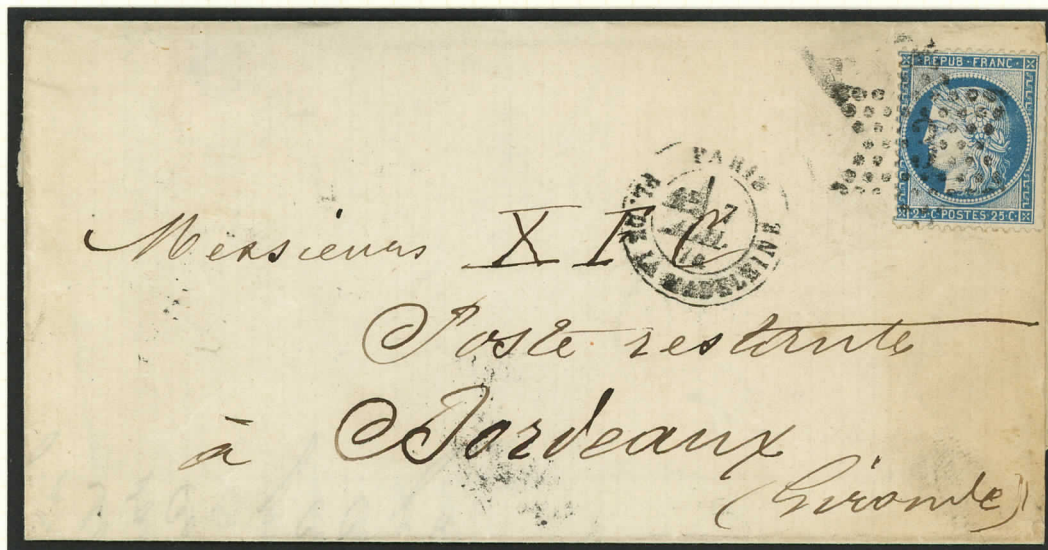 REPUB · FRANC ·
25 · C · POSTES · 25 · C ·
PARIS
PL. DE LA MADELEINE
Messieurs X I C
Poste restante
à Bordeaux
(Gironde)